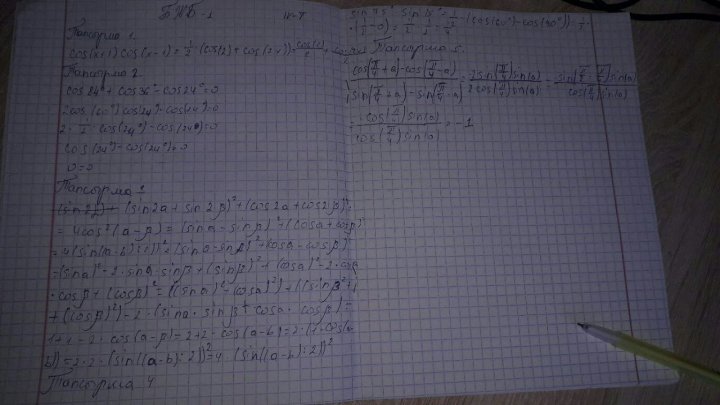 БЖБ-1
Тапсырма 1.
cos(x+1) cos(x-1) = 1/2 · (cos(2) + cos(2x)) =
Тапсырма 2
cos 24° + cos 36° - cos 24° = 0
2cos(60°) cos 24° - cos 24° = 0
2 · 1/2 · cos(24°) - cos(24°) = 0
cos(24°) - cos(24°) = 0
0 = 0
Тапсырма 3
(sin2a + sin2β)² + (cos2a + cos2β)² =
= 4cos²(a-β) = (sina - sinβ)² + (cosa + cosβ)²
= 4(sin((a-b):2))² = (sina - sinβ)² + (cosa - cosβ)²
= (sina)² - 2·sina·sinβ + (sinβ)² + (cosa)² - 2·cosa
·cosβ + (cosβ)² = ((sina)² - cosa)²) + ((sinβ²
+ (cosβ)²) - 2·(sina·sinβ + cosa·cosβ) =
1+1-2·cos(a-β) = 2+2·cos(a-b) = 2·(1-cos(a-
b)) = 2·2·(sin((a-b):2))² = 4·(sin((a-b):2))²
Тапсырма 4
sin 75° · sin 15° = 1/2 · (cos(60°) - cos(90°)) = 1/2 ·
· (1/2 - 0) = 1/2 · 1/2 = 1/4
Тапсырма 5.
cos(π/4 + a) - cos(π/4 - a)
sin(π/4 + a) - sin(π/4 - a)
= 2sin(π/4) sin(a)
2cos(π/4) sin(a)
= sin(π/2 - π/4) sin(a)
cos(π/4) sin(a)
- cos(π/4) sin(a)
cos(π/4) sin(a)
= -1